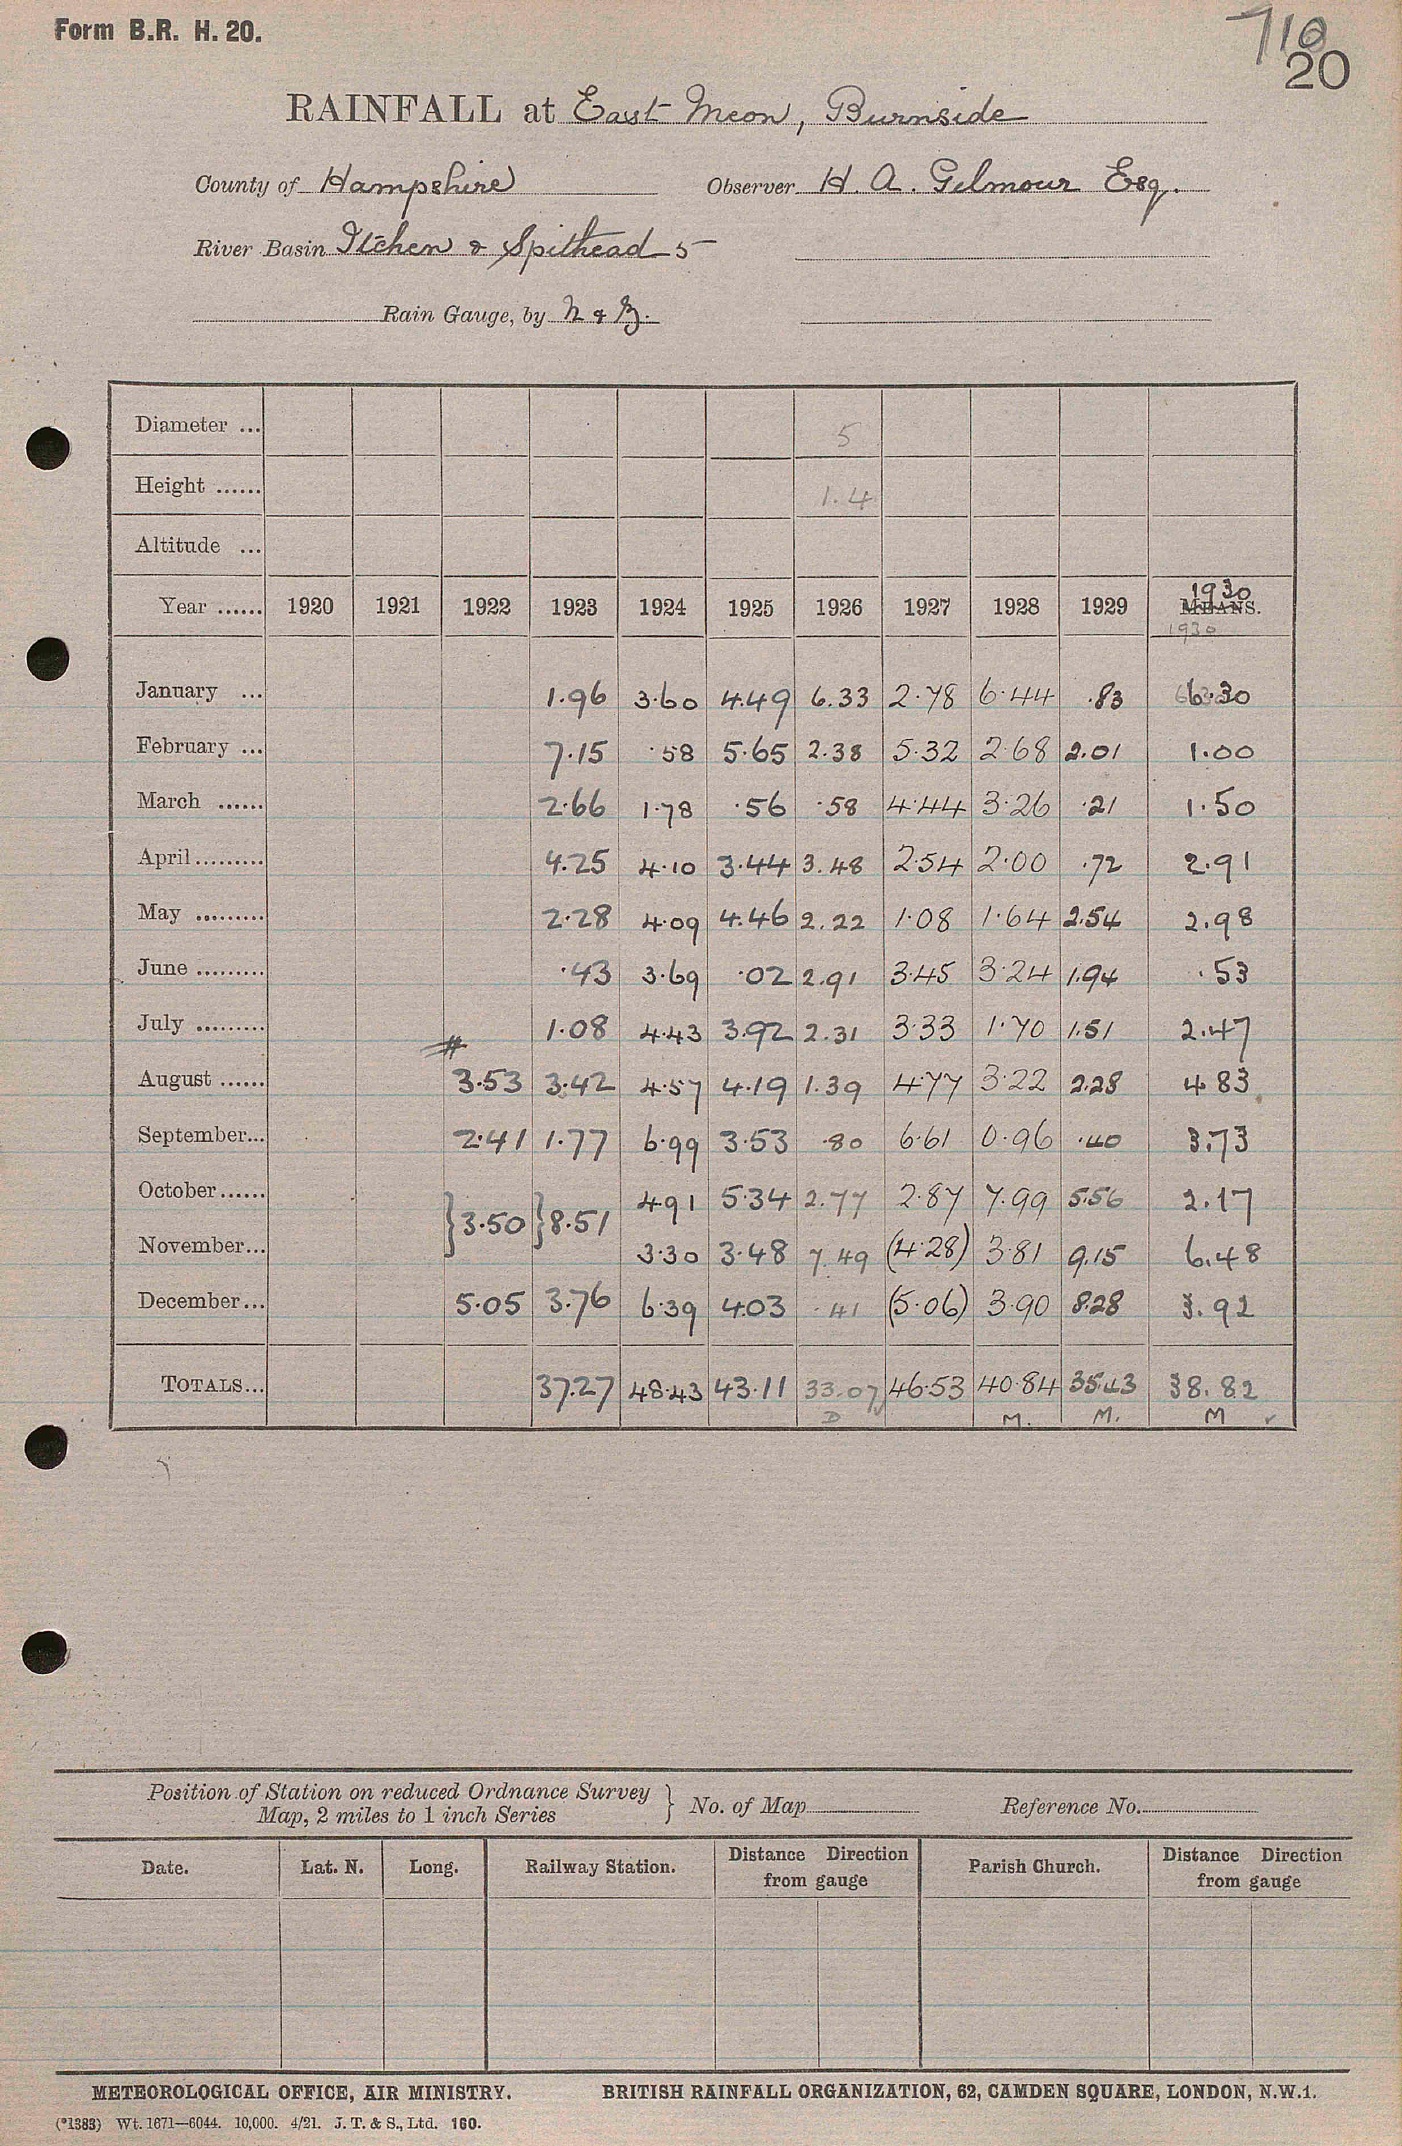 Form B.R. H. 20.
710
20
RAINFALL at East Meon, Burnside
County of Hampshire Observer H. A. Gilmour Esq.
River Basin Itchen & Spithead 5
Rain Gauge, by N & Z.
Diameter ... 5
Height ...... 1.4
Altitude ...
1930
Year ...... 1920 1921 1922 1923 1924 1925 1926 1927 1928 1929 MEANS.
1930
January ... 1.96 3.60 4.49 6.33 2.78 6.44 .83 6.30
February ... 7.15 .58 5.65 2.38 5.32 2.68 2.01 1.00
March ...... 2.66 1.78 .56 .58 4.44 3.26 .21 1.50
April......... 4.25 4.10 3.44 3.48 2.54 2.00 .72 2.91
May ......... 2.28 4.09 4.46 2.22 1.08 1.64 2.54 2.98
June ......... .43 3.69 .02 2.91 3.45 3.24 1.94 .53
July ......... 1.08 4.43 3.92 2.31 3.33 1.70 1.51 2.47
August ...... 3.53 3.42 4.57 4.19 1.39 4.77 3.22 2.28 4.83
September... 2.41 1.77 6.99 3.53 .80 6.61 0.96 .40 3.73
October...... }3.50 }8.51 4.91 5.34 2.77 2.87 7.99 5.56 2.17
November... 3.30 3.48 7.49 (4.28) 3.81 9.15 6.48
December... 5.05 3.76 6.39 4.03 .41 (5.06) 3.90 8.28 3.92
TOTALS... 37.27 48.43 43.11 33.07 46.53 40.84 35.43 38.82
D M. M. M
Position of Station on reduced Ordnance Survey
Map, 2 miles to 1 inch Series } No. of Map Reference No.
Date. Lat. N. Long. Railway Station. Distance Direction from gauge Parish Church. Distance Direction from gauge
METEOROLOGICAL OFFICE, AIR MINISTRY. BRITISH RAINFALL ORGANIZATION, 62, CAMDEN SQUARE, LONDON, N.W.1.
(*1383) Wt. 1671—6044. 10,000. 4/21. J. T. & S., Ltd. 160.